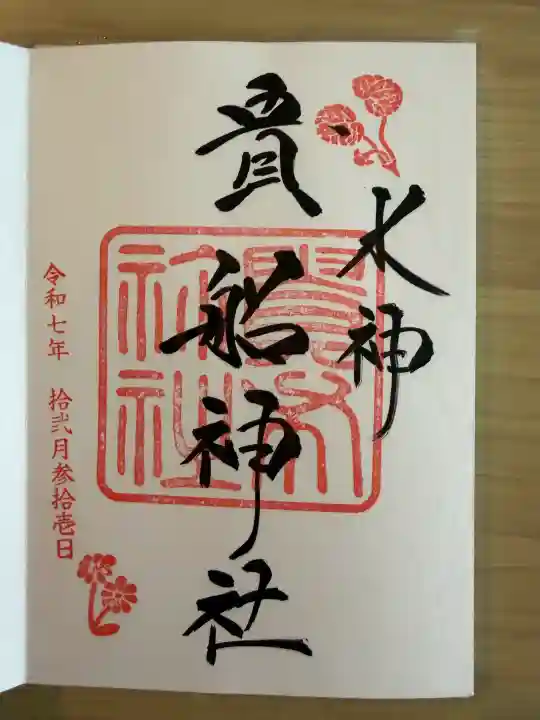 水神
貴船神社
令和七年 拾弐月参拾壱日